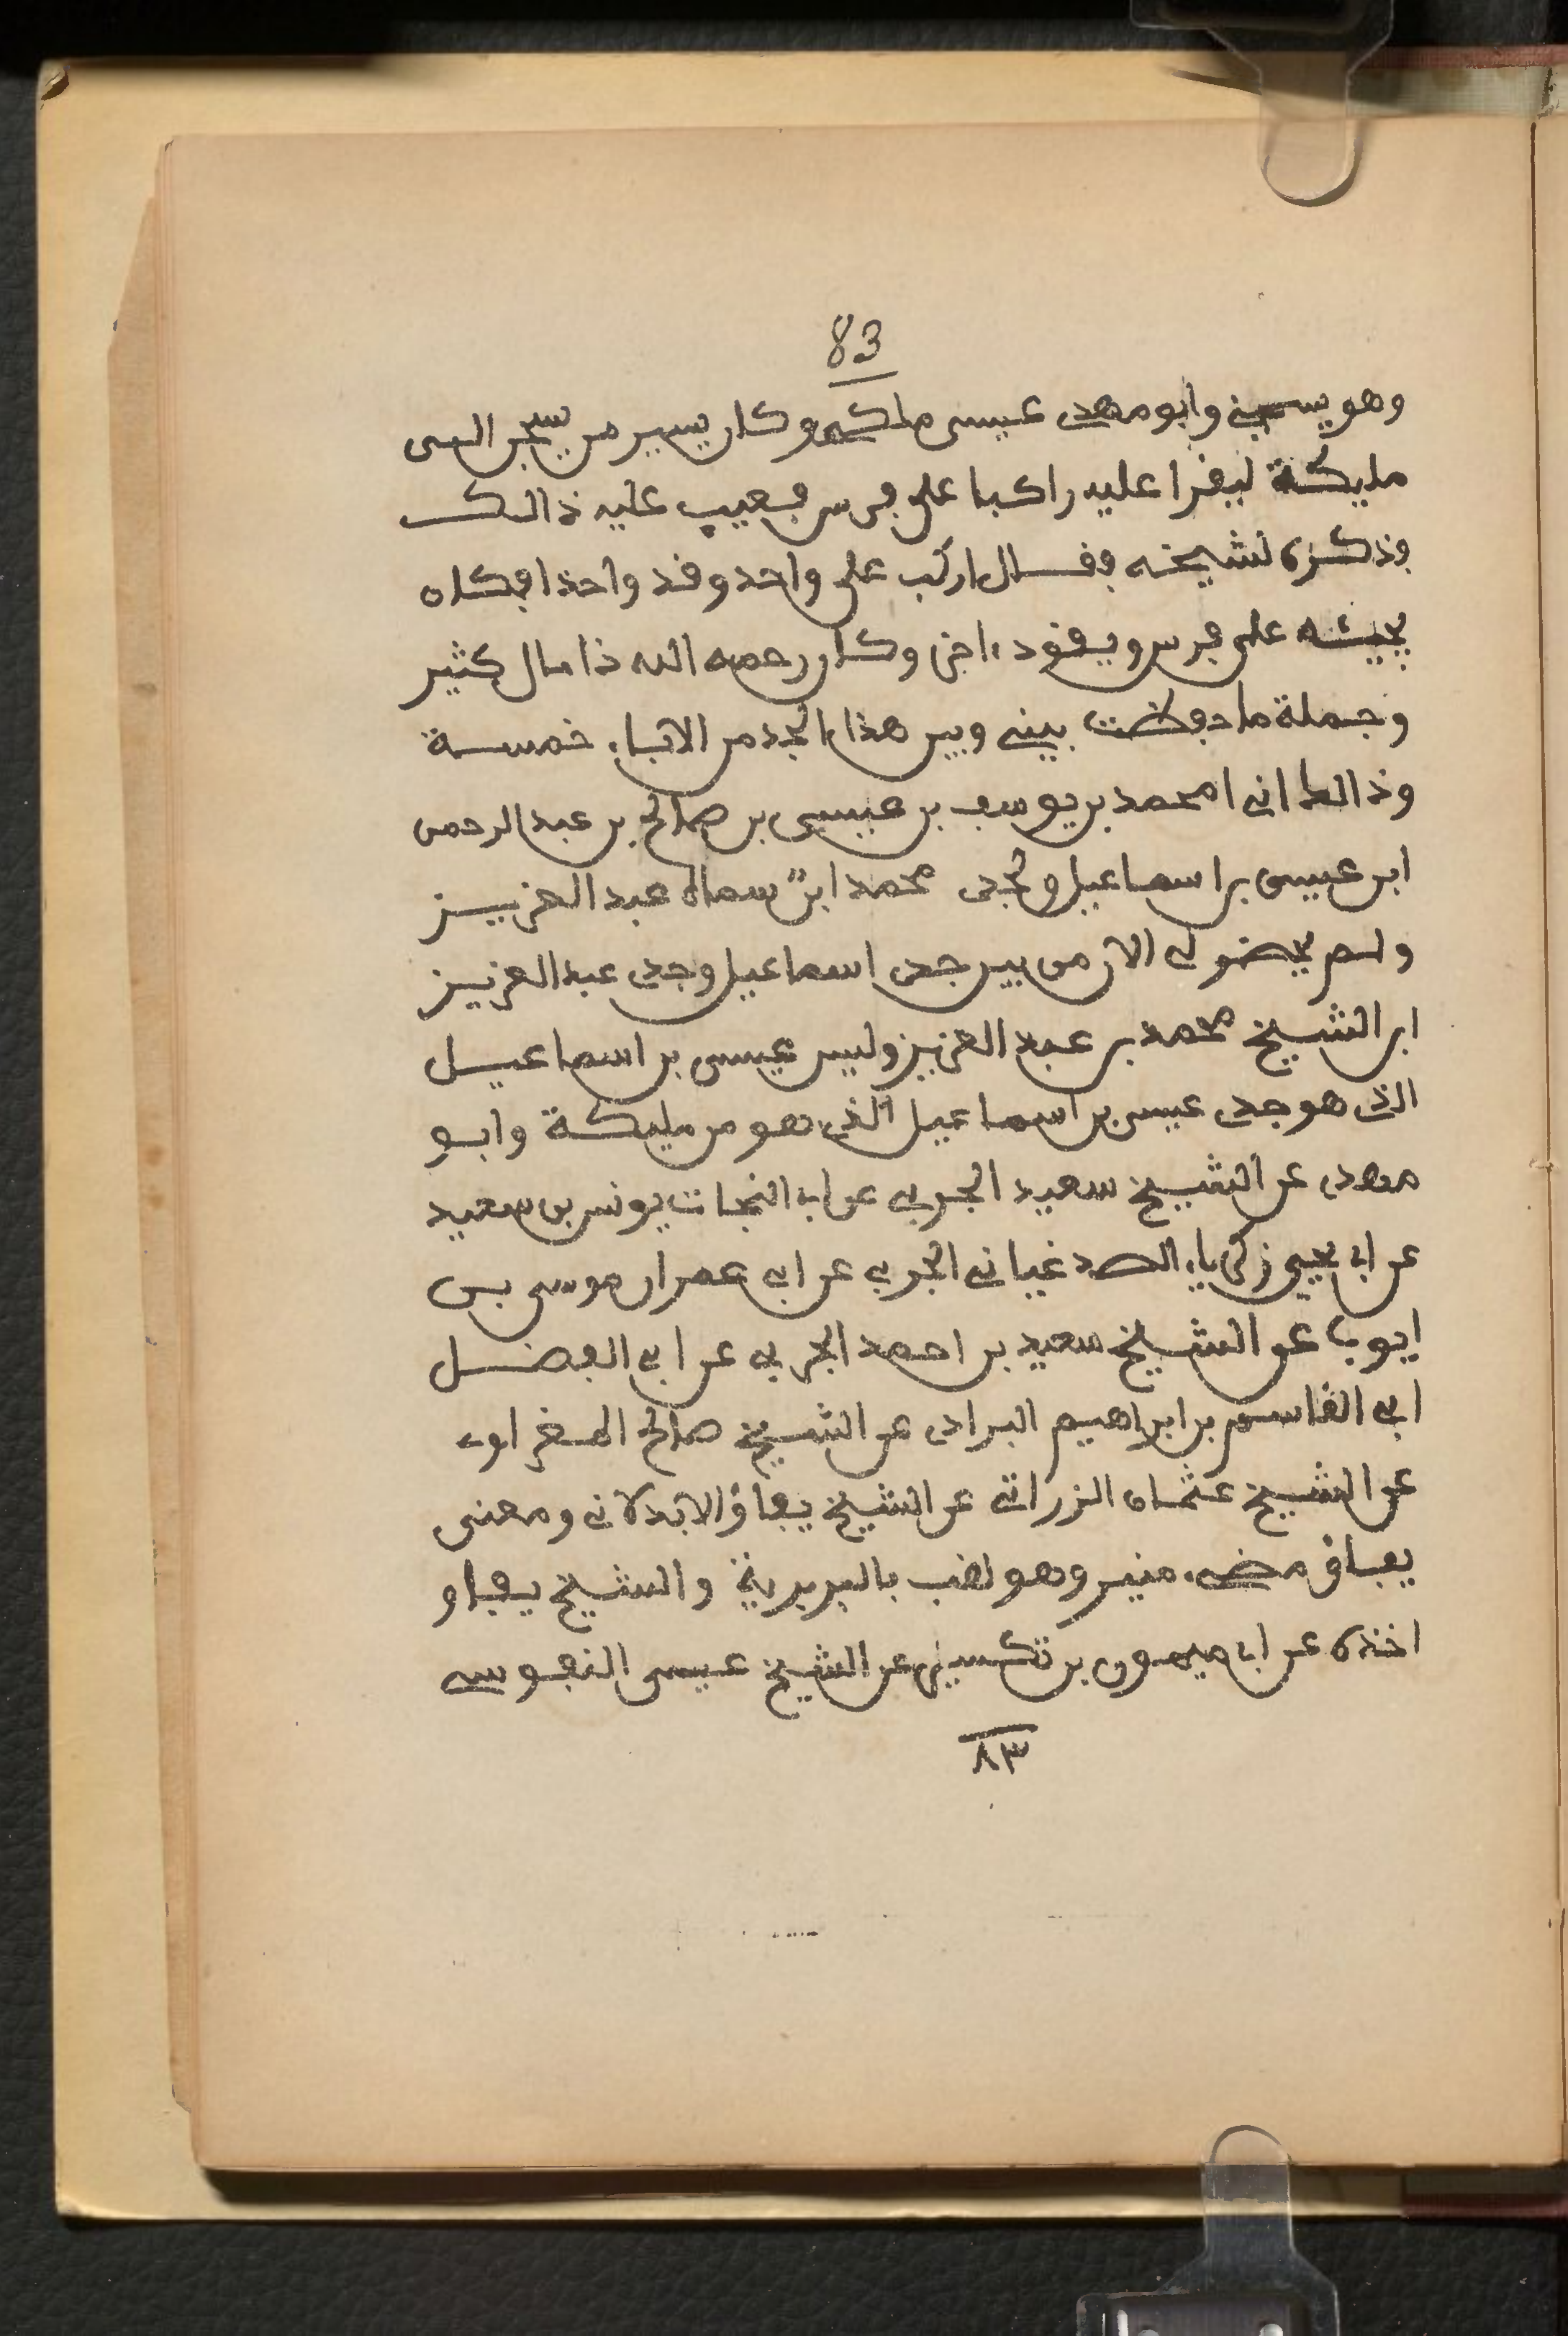 83
وهو يسجني وابو مهدي عيسى مليكي وكان يسير من يسجن الى
مليكة ليقرا عليه راكبا على فرس فعيب عليه ذالك
وذكره لشيخه فقال اركب على واحد وقد واحدا فكان
يجيئه على فرس ويقود اخرى وكان رحمه الله ذا مال كثير
وجملة ما حفظت بيني وبين هذا الجد من الاباء خمسة
وذالك اني امحمد بن يوسف بن عيسى بن صالح بن عبد الرحمن
ابن عيسى بن اسماعيل ولجدي محمد ابن سماه عبد العزيز
ولم يحضر لي الان من بين جدي اسماعيل وجدي عبد العزيز
ابن الشيخ محمد بن عبد العزيز وليس عيسى بن اسماعيل
الذي هو جدي عيسى بن اسماعيل الذي هو من مليكة وابو
مهدي عن الشيخ سعيد الجربي عن ابي النجات يونس بن سعيد
عن ابي يحيى زكرياء الصدغياني الجربي عن ابي عمران موسى بن
ايوب عن الشيخ سعيد بن احمد الجربي عن ابي الفضل
ابي القاسم بن ابراهيم البرادي عن الشيخ صالح المغراوي
عن الشيخ عثمان الزراتي عن الشيخ يفاو الابدلاني ومعنى
يفاو مضيء منير وهو لقب بالبربرية والشيخ يفاو
اخذه عن ابي ميمون بن عن الشيخ عيسى النفوسي
٨٣